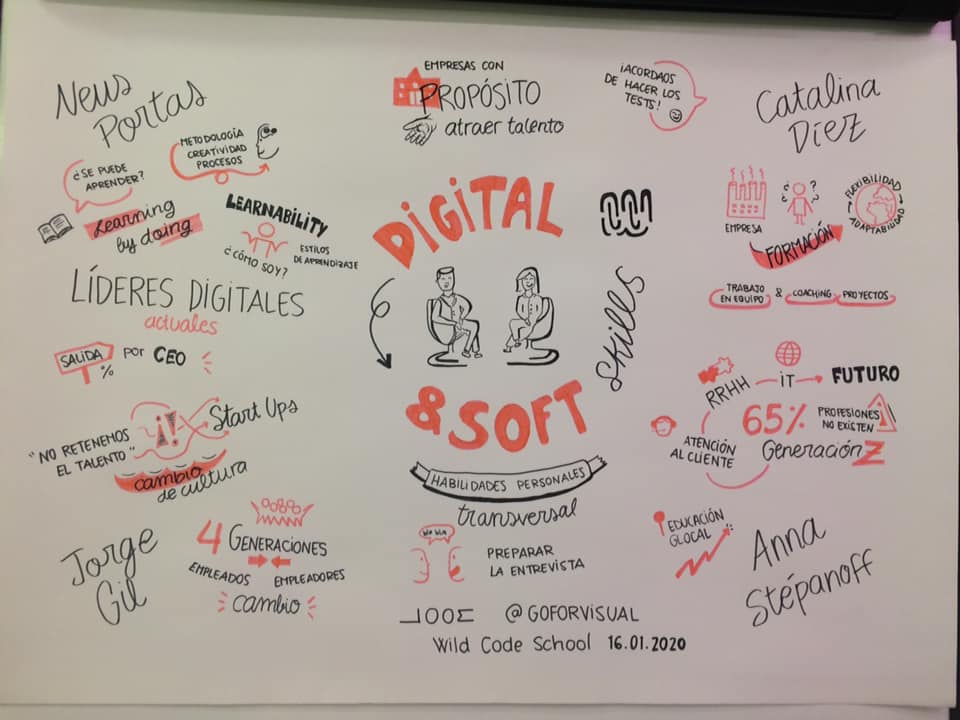 Neus
Portas
¿SE PUEDE
APRENDER?
METODOLOGÍA
CREATIVIDAD
PROCESOS
Learning
by doing
LEARNABILITY
¿CÓMO SOY?
ESTILOS
DE APRENDIZAJE
LÍDERES DIGITALES
actuales
SALIDA
%
POR CEO
"NO RETENEMOS
EL TALENTO"
¡!
Start Ups
cambio
de cultura
Jorge
Gil
4 GENERACIONES
EMPLEADOS
EMPLEADORES
cambio
EMPRESAS CON
PROPÓSITO
atraer talento
¡ACORDAOS
DE HACER LOS
TESTS!
DIGITAL
& SOFT
Skills
HABILIDADES PERSONALES
transversal
Bla bla
PREPARAR
LA ENTREVISTA
@GOFORVISUAL
Wild Code School 16.01.2020
Catalina
Díez
EMPRESA
¿ ?
¿
FLEXIBILIDAD
ADAPTABILIDAD
FORMACIÓN
TRABAJO
EN EQUIPO
&
COACHING
PROYECTOS
RRHH
IT
FUTURO
65%
PROFESIONES
NO EXISTEN
!
ATENCIÓN
AL CLIENTE
Generación Z
EDUCACIÓN
GLOCAL
Anna
Stépanoff